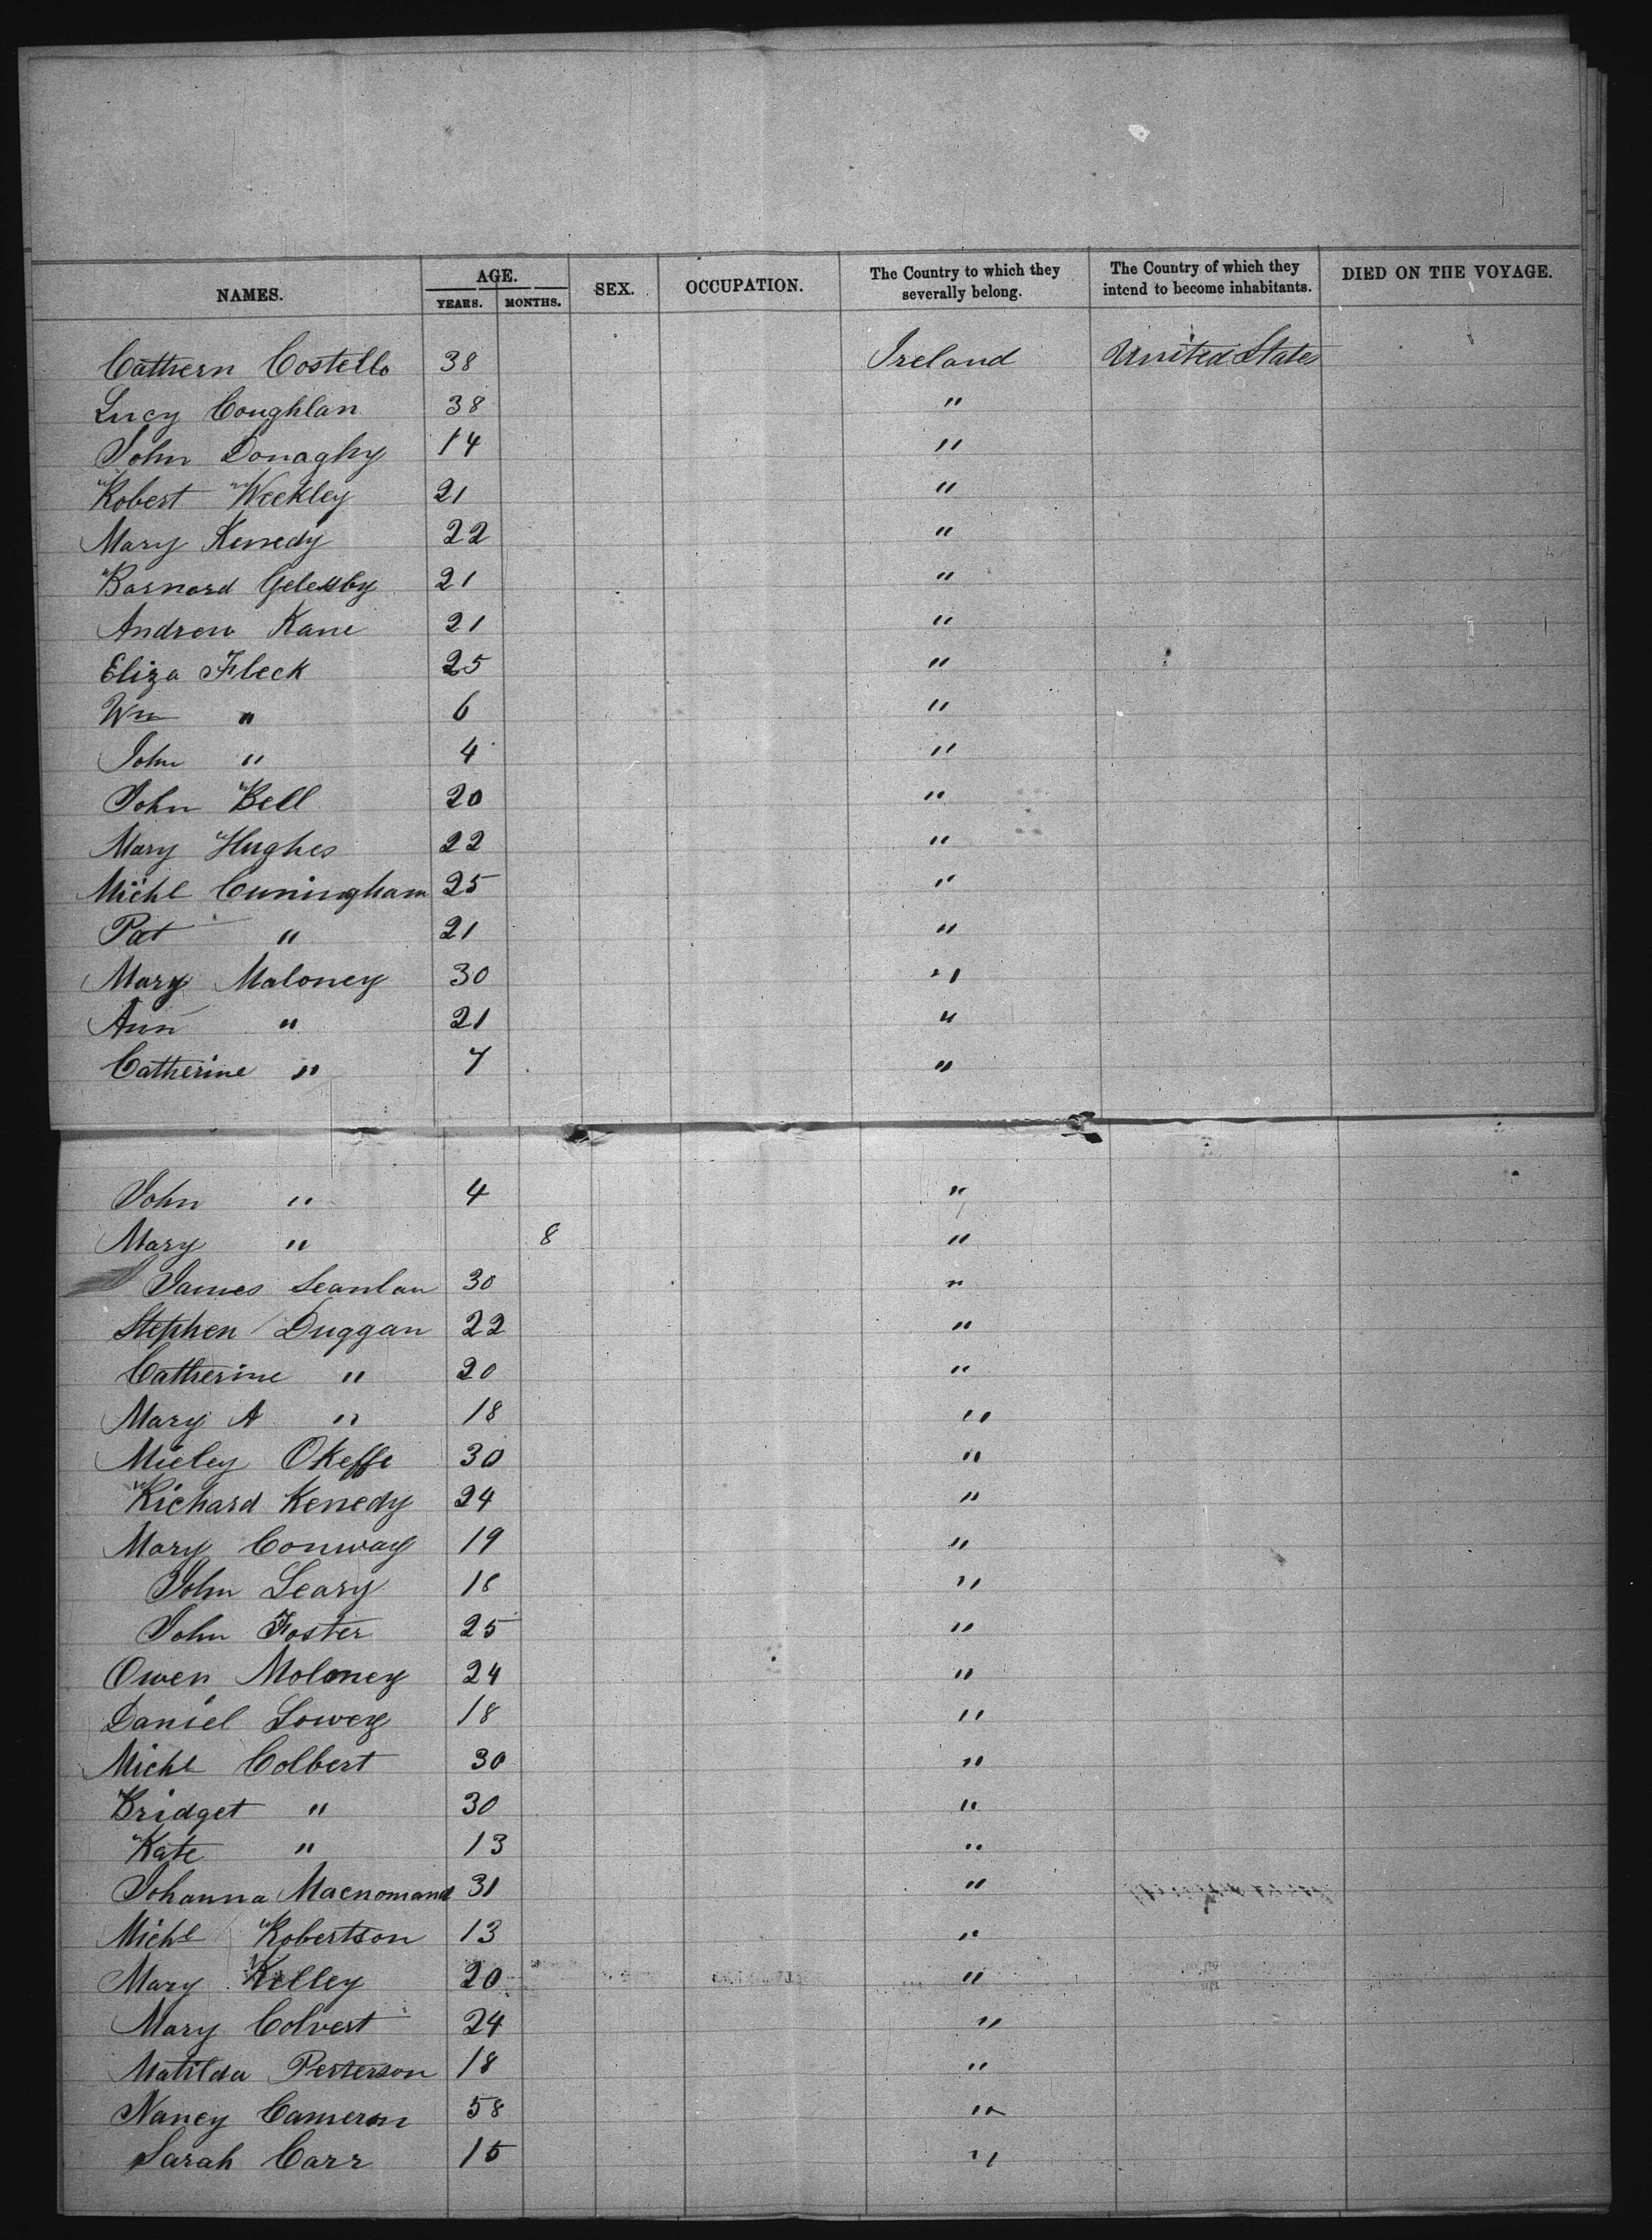 NAMES. AGE. YEARS. MONTHS. SEX. OCCUPATION. The Country to which they severally belong. The Country of which they intend to become inhabitants. DIED ON THE VOYAGE.
Cathern Costello 38 Ireland United States
Lucy Coughlan 38 "
John Donaghy 14 "
Robert Weekley 21 "
Mary Kenedy 22 "
Barnard 21 "
Andrew Kane 21 "
Eliza Fleck 25 "
Wm " 6 "
John " 4 "
John Bell 20 "
Mary Hughes 22 "
Michl Cuningham 25 "
Pat " 21 "
Mary Maloney 30 "
Ann " 21 "
Catherine " 7 "
John " 4 "
Mary " 8 "
James Scanlan 30 "
Stephen Duggan 22 "
Catherine " 20 "
Mary A " 18 "
Okeffe 30 "
Richard Kenedy 24 "
Mary Conway 19 "
John Leary 18 "
John Foster 25 "
Owen Moloney 24 "
Daniel Lowey 18 "
Michl Colbert 30 "
Bridget " 30 "
Kate " 13 "
Johanna 31 "
Michl Robertson 13 "
Mary Kelley 20 "
Mary Colvert 24 "
Matilda Perterson 18 "
Nancy Cameron 58 "
Sarah Carr 15 "